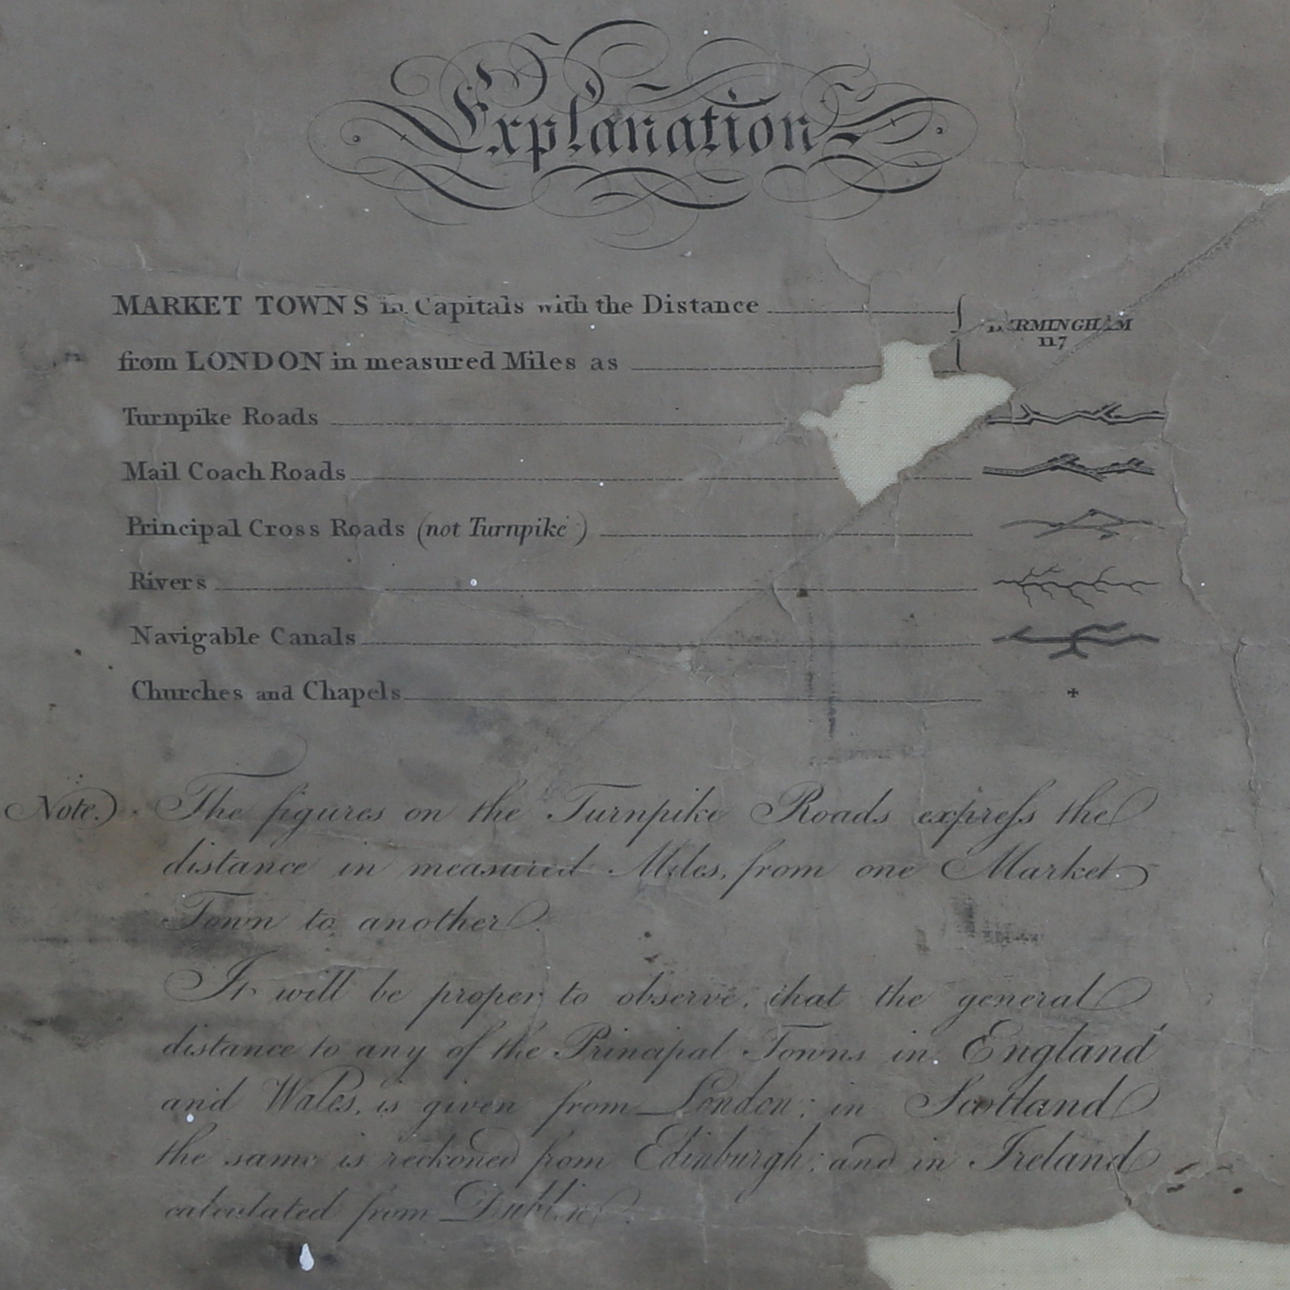 Explanation
MARKET TOWNS in Capitals with the Distance
BIRMINGHAM
117
from LONDON in measured Miles as
Turnpike Roads
Mail Coach Roads
Principal Cross Roads (not Turnpike)
Rivers
Navigable Canals
Churches and Chapels
Note. The figures on the Turnpike Roads expreſs the
distance in measured Miles, from one Market
Town to another.
It will be proper to observe, that the general
distance to any of the Principal Towns in England
and Wales, is given from London; in Scotland
the same is reckoned from Edinburgh; and in Ireland
calculated from Dublin.